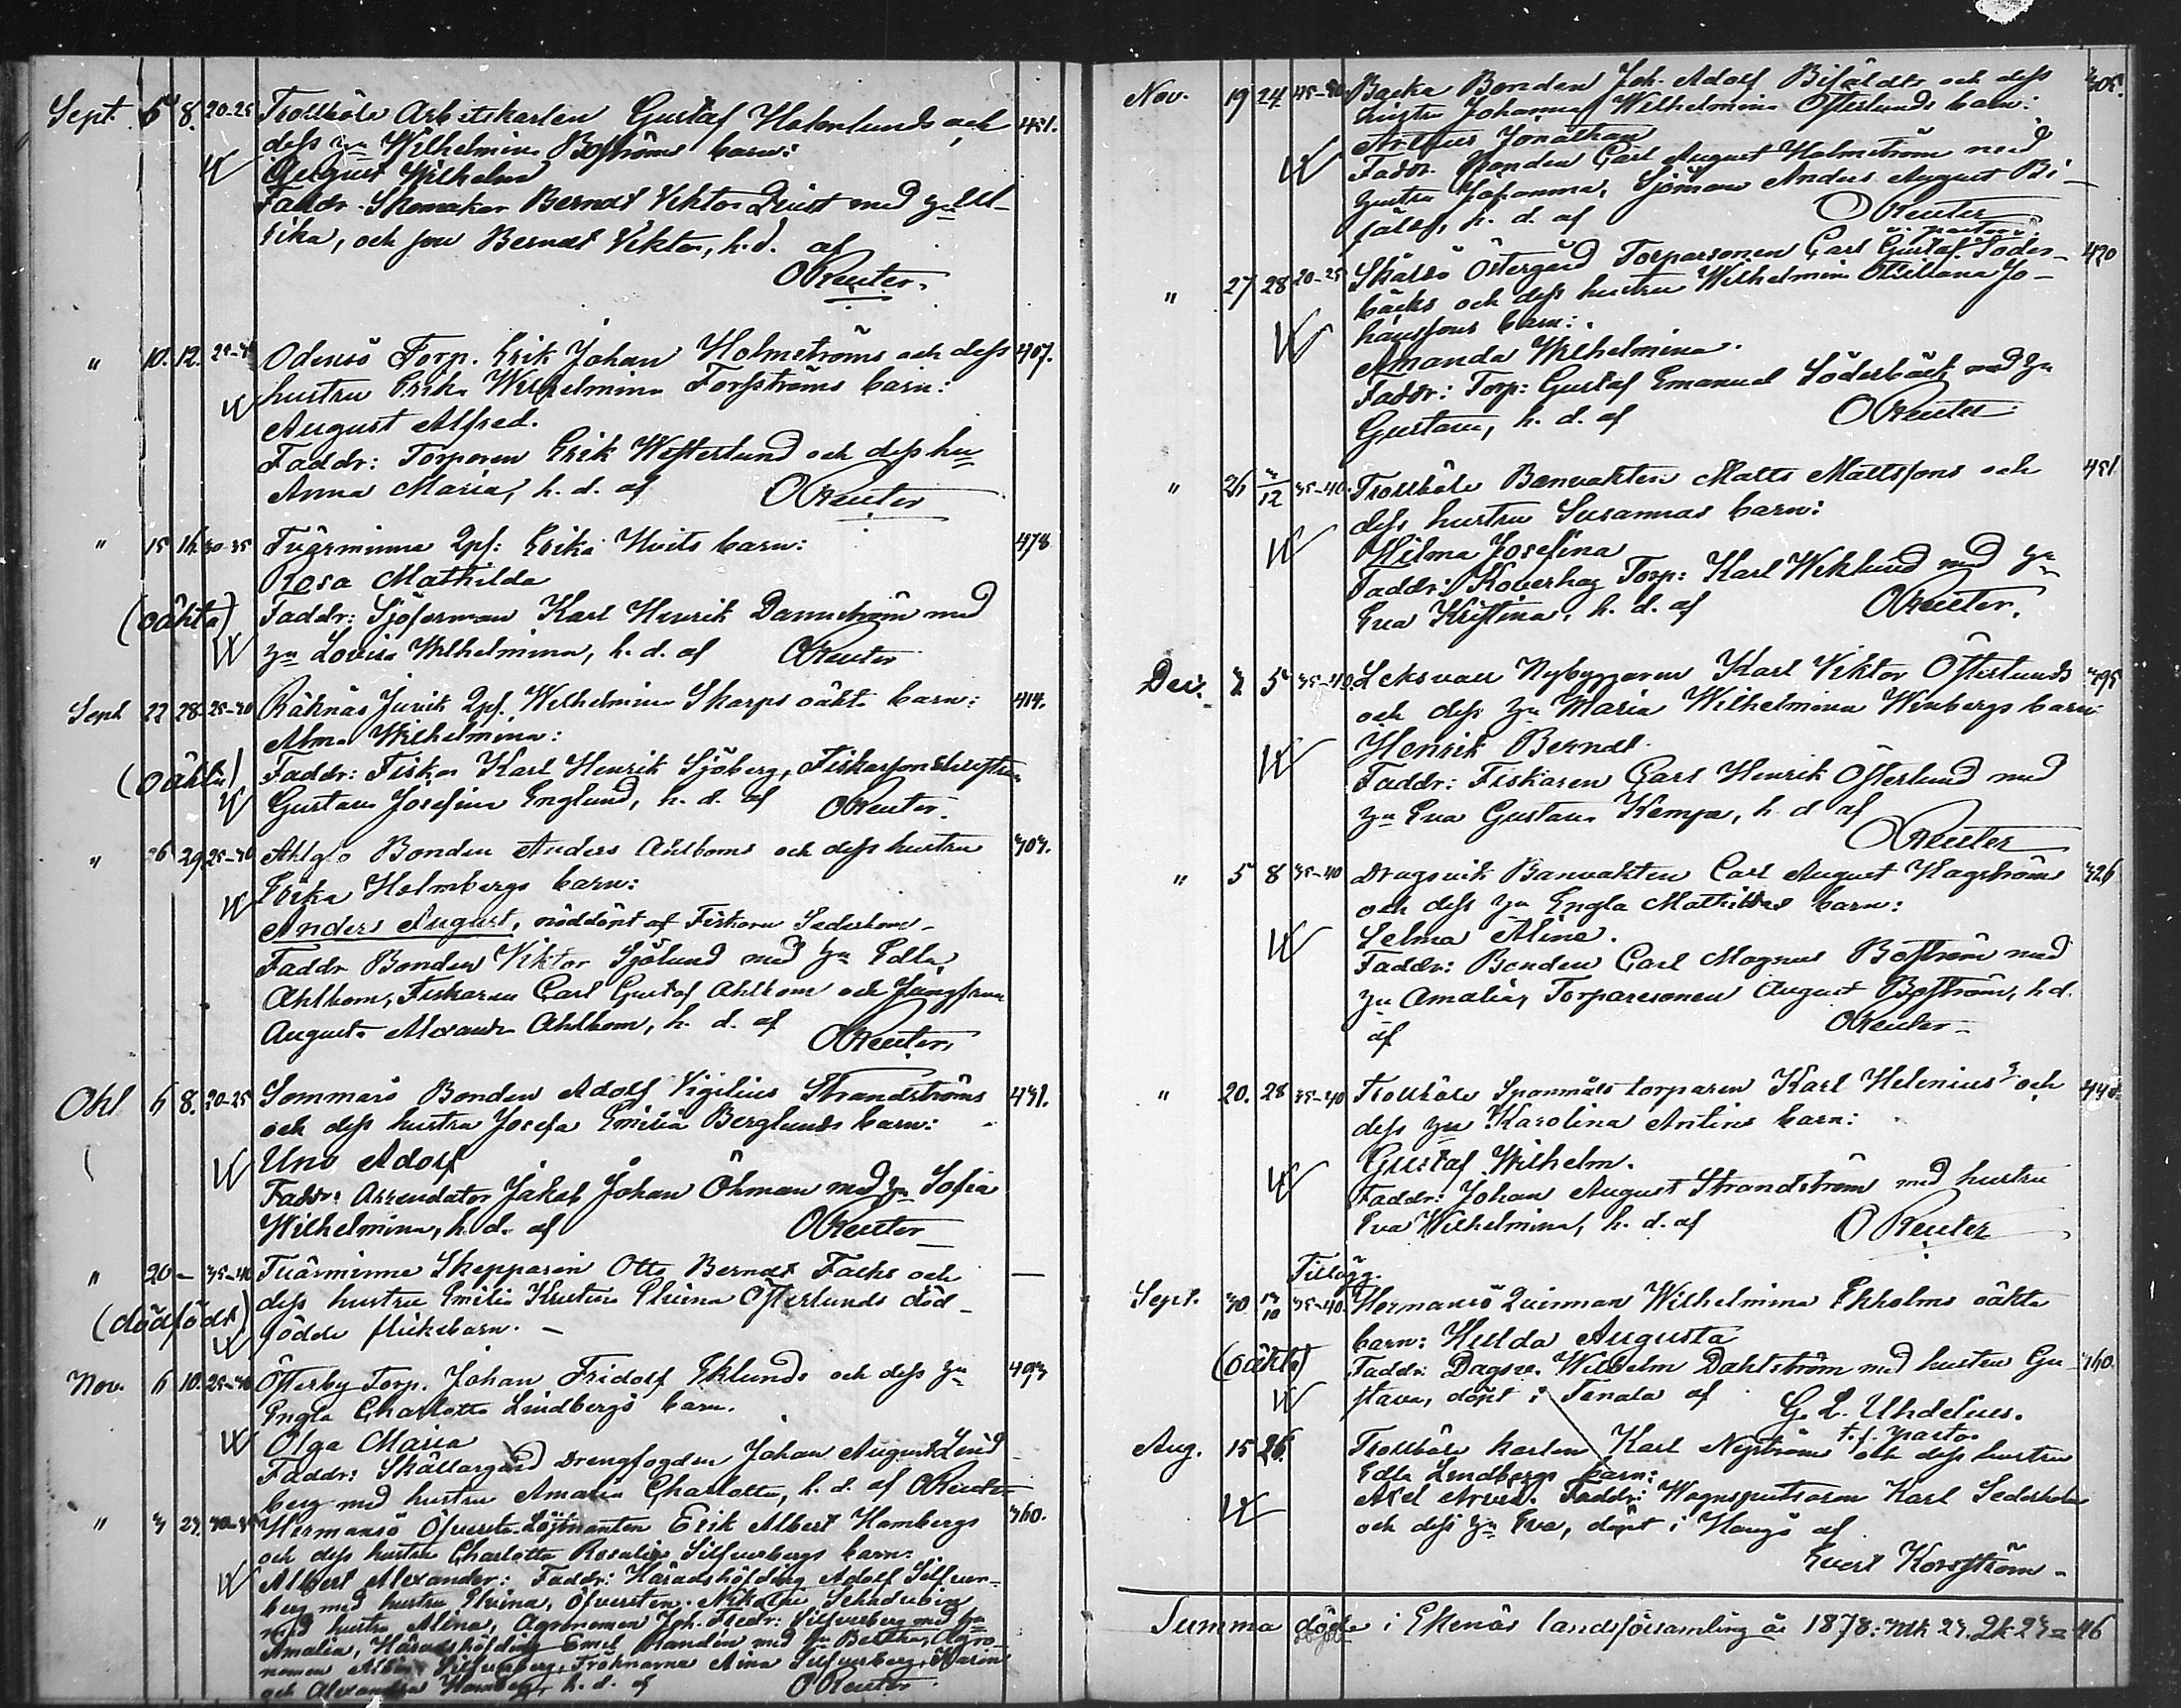 Sept. 6 8. 20-25 Trollböle Arbetskarlen Gustaf Holmlunds och 451.
dess hu Wilhelmina Boströms barn:
August Wilhelm
Faddr. Skomakar Berndt Viktor Qvist med hu Ul-
rika, och son Berndt Viktor, h. d. af
OReuter.
" 10. 12. Odensö Torp. Erik Johan Holmströms och dess 407.
hustru Erika Wilhelmina Forsströms barn:
August Alfred.
Faddr: Torparen Erik Westerlund och dess hu
Anna Maria, h. d. af OReuter
" 15 16. 30-35 Tvärminne Qpf: Erika Hvits barn: 478
Rosa Mathilda
(oäkta) Faddr: Karl Henrik Dannström med
hu Lovisa Wilhelmina, h. d. af OReuter
Sept 22 28 25-30 Råknäs Qpf. Wilhelmina Skarps oäkta barn: 414.
Alma Wilhelmina:
(oäkta) Faddr: Fiskar Karl Henrik Sjöberg,
Gustava Josefina Englund, h. d. af OReuter.
" 26 29 25-30 Alglo Bonden Anders Ahlboms och dess hustru 303.
Erika Holmbergs barn:
Anders August, nöddöpt af Fiskaren Sederholm-
Faddr Bonden Viktor Sjölund med hu Edla
Ahlbom, Fiskaren Carl Gustaf Ahlbom och Jungfrun
Augusta Alexandra Ahlbom, h. d. af OReuter
Okt 6 8. 20-25 Sommarö Bonden Adolf Vigilius Strandströms 431.
och dess hustru Josefa Emilia Berglunds barn:
Uno Adolf
Faddr: Arrendator Jakob Johan Öhman med hu Sofia
Wilhelmina, h. d. af OReuter
" 20 - 35-40 Tvärminne Skepparen Otto Berndt Facks och -
dess hustru Emilia Österlunds död-
(dödfödt) födda flickebarn. -
Nov. 6 10. 25-30 Österby Torp. Johan Fridolf Eklunds och dess hu 493
Engla Charlotta Lindbergs barn.
Olga Maria
Faddr: Skållargård Drengfogden Johan August Lind-
berg med hustru Amalia Charlotta, h. d. af OReuter
" 3 23. Hermansö Öfverste-Löjtnanten Erik Albert Hambergs 360.
och dess hustru Charlotta Rosalie Silfversbergs barn:
Albert Alexander: Faddr: Häradshöfding Adolf Silfver-
berg med hustru Elvina, Öfversten
med hustru Alina, Agronomen Joh. Fredr: Silfverberg med hu
Amalia, Häradshöfding Emil med hu Bertha, Agro-
nomen Albin Silfverberg, Fröknarna Aina Silfverberg, Karin
och Alexandra Hamberg, h. d. af OReuter
Nov. 19 24 45-50 Backa Bonden Joh. Adolf Bifäldts och dess 305.
hustru Johanna Wilhelmina Österlunds barn:
Arthur Jonathan
Faddr. Bonden Carl August Holmström med
hustru Johanna, Sjöman Anders August Bi-
fält, h. d. af OReuter
" 27 28 20-25 Skåldö Östergård Torparsonen Carl Gustaf Söder- 420
bäcks och dess hustru Wilhelmina Jo-
hanssons barn:
Amanda Wilhelmina.
Faddr: Torp: Gustaf Emanuel Söderbäck med hu
Gustava, h. d. af OReuter
" 26 /12 35-40. Trollböle Banvakten Matts Mattsons och 451
dess hustru Susannas barn:
Hilma Josefina
Faddr: Koverhag Torp: Karl Weklund med hu
Eva Kristina, h. d. af OReuter.
Dec. 2 5 35-40. Leksvall Nybyggaren Karl Viktor Österlunds 395
och dess hu Maria Wilhelmina Winbergs barn
Henrik Berndt.
Faddr: Fiskaren Carl Henrik Österlund med
hu Eva Gustava Kempe, h. d. af
OReuter
" 5 8 35-40 Dragsvik Banvakten Carl August Hagströms 326
och dess hu Engla Mathildas barn:
Selma Alina.
Faddr: Bonden Carl Magnus Boström med
hu Amalia, Torparesonen August Boström, h. d.
af OReuter-
" 20. 28 35-40 Trollböle Spanmåls torparen Karl Helenius och
dess hu Karolina Antins barn:
Gustaf Wilhelm.
Faddr: Johan August Strandström med hustru
Eva Wilhelmina, h. d. af O Reuter
Tillägg.
Sept. 30 /10 35-40. Hermansö Qvinnan Wilhelmina Ekholms oäkta
barn: Hulda Augusta
(oäkta) Faddr: Dagsv. Wilhelm Dahlström med hustru Gu- 360.
stava, döpt i Tenala af G. L. Uhdelius.
t. f. pastor
Aug. 15 26. Trollböle karlen Karl Nyströms och dess hustru
Edla Lindbergs barn:
Axel Arvid. Faddr: Karl Sederholm
och dess hu Eva, döpt i Hangö af
Evert Korsström.
Summa döpte i Ekenäs landsförsamling år 1878: Mk 23. Qk 23 = 46